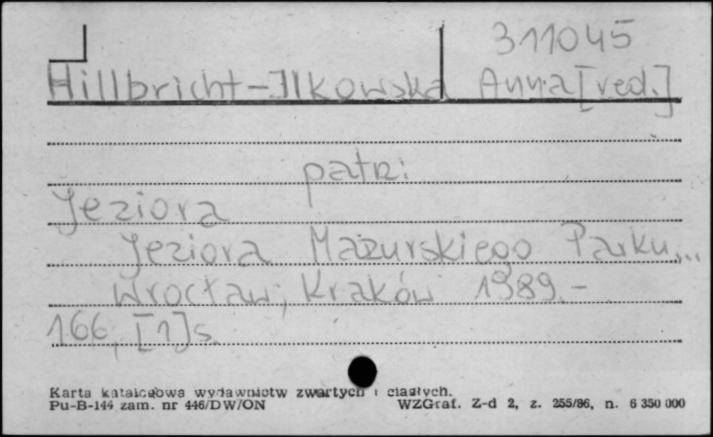 311045
Hillbricht-Ilkowska Anna [red.]
patrz:
Jeziora
Jeziora Mazurskiego Parku...
Wrocław, Kraków 1989.-
166, [1]s.
Karta katalogowa wydawnictw zwartych i ciągłych.
Pu-B-144 zam. nr 446/DW/ON WZGraf. Z-d 2, z. 255/86, n. 6 350 000